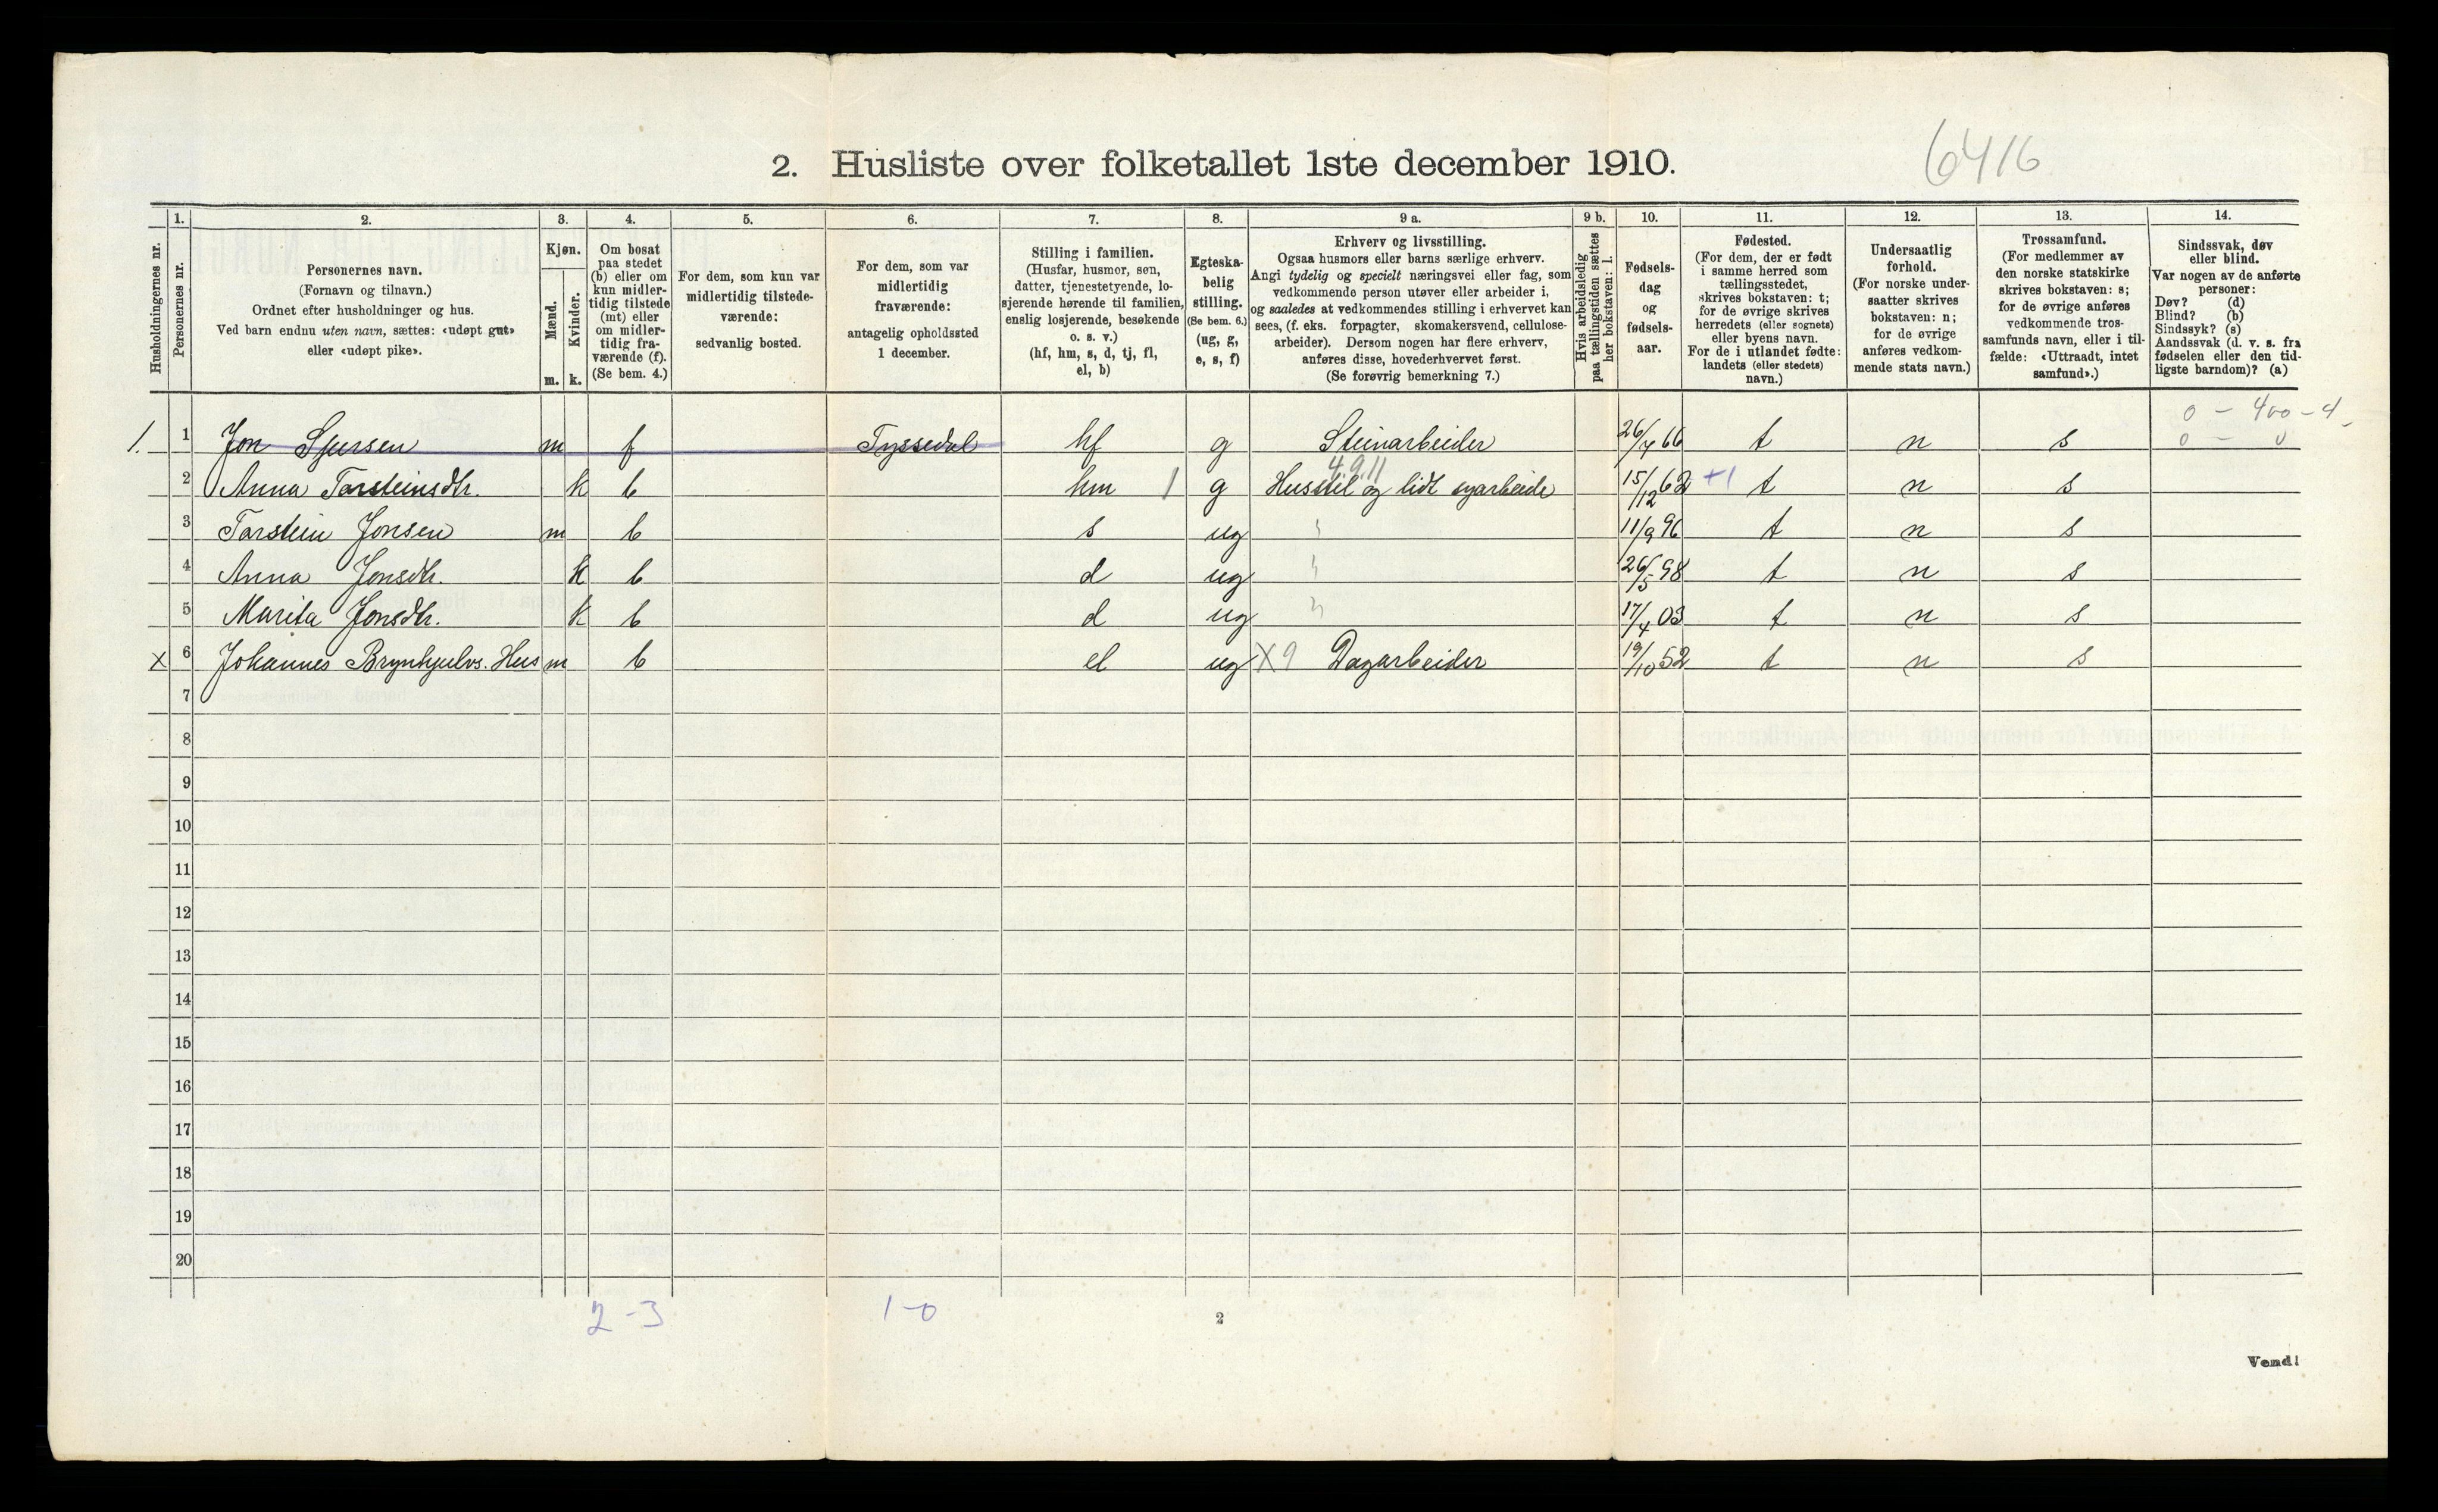 6416
2. Husliste over folketallet 1ste december 1910.
Husholdningernes nr.
1. Personernes nr.
2. Personernes navn.
(Fornavn og tilnavn.)
Ordnet efter husholdninger og hus.
Ved barn endnu uten navn, sættes: «udøpt gut»
eller «udøpt pike».
3. Kjøn.
Mænd. m.
Kvinder. k.
4. Om bosat
paa stedet
(b) eller om
kun midler-
tidig tilstede
(mt) eller
om midler-
tidig fra-
værende (f).
(Se bem. 4.)
5. For dem, som kun var
midlertidig tilstede-
værende:
sedvanlig bosted.
6. For dem, som var
midlertidig
fraværende:
antagelig opholdssted
1 december.
7. Stilling i familien.
(Husfar, husmor, søn,
datter, tjenestetyende, lo-
sjerende hørende til familien,
enslig losjerende, besøkende
o. s. v.)
(hf, hm, s, d, tj, fl,
el, b)
8. Egteska-
belig
stilling.
(Se bem. 6.)
(ug, g,
e, s, f)
9 a. Erhverv og livsstilling.
Ogsaa husmors eller barns særlige erhverv.
Angi tydelig og specielt næringsvei eller fag, som
vedkommende person utøver eller arbeider i,
og saaledes at vedkommendes stilling i erhvervet kan
sees, (f. eks. forpagter, skomakersvend, cellulose-
arbeider). Dersom nogen har flere erhverv,
anføres disse, hovederhvervet først.
(Se forøvrig bemerkning 7.)
9 b. Hvis arbeidsledig
paa tællingstiden sættes
her bokstaven: l.
10. Fødsels-
dag
og
fødsels-
aar.
11. Fødested.
(For dem, der er født
i samme herred som
tællingsstedet,
skrives bokstaven: t;
for de øvrige skrives
herredets (eller sognets)
eller byens navn.
For de i utlandet fødte:
landets (eller stedets)
navn.)
12. Undersaatlig
forhold.
(For norske under-
saatter skrives
bokstaven: n;
for de øvrige
anføres vedkom-
mende stats navn.)
13. Trossamfund.
(For medlemmer av
den norske statskirke
skrives bokstaven: s;
for de øvrige anføres
vedkommende tros-
samfunds navn, eller i til-
fælde: «Uttraadt, intet
samfund».)
14. Sindssvak, døv
eller blind.
Var nogen av de anførte
personer:
Døv? (d)
Blind? (b)
Sindssyk? (s)
Aandssvak (d. v. s. fra
fødselen eller den tid-
ligste barndom)? (a)
0 - 400 - 4
1. 1 Jon Sjursen m f Tyssedal hf g Steinarbeider 26/4 66 t n s 0 - 0
4.9.11
2 Anna Torsteinsdtr. k b hm 1 g Husstel og lidt syarbeide 15/12 62 +1 t n s
3 Torstein Jonsen m b s ug 11/9 96 t n s
4 Anna Jonsdtr. k b d ug 26/5 98 t n s
5 Marita Jonsdtr. k b d ug 17/4 03 t n s
X 6 Johannes Brynhjulvs. Hus m b el ug X9 Dagarbeider 19/10 52 t n s
7
8
9
10
11
12
13
14
15
16
17
18
19
20
2-3 1-0
2
Vend!